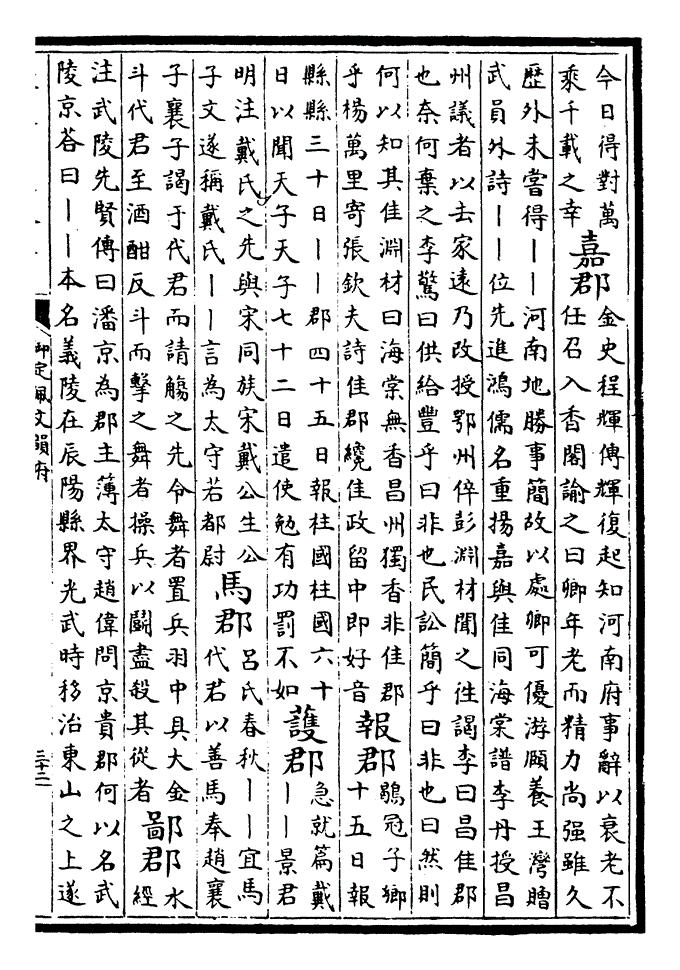 今日得對萬
乘千載之幸
嘉郡
金史程輝傳輝復起知河南府事辭以衰老不
任召入香閣諭之曰卿年老而精力尚强雖久
歷外未嘗得――河南地勝事簡故以處卿可優游頤養王灣贈
武員外詩――位先進鴻儒名重揚嘉與佳同海棠譜李丹授昌
州議者以去家遠乃改授鄂州倅彭淵材聞之徃謁李曰昌佳郡
也奈何棄之李驚曰供給豐乎曰非也民訟簡乎曰非也曰然則
何以知其佳淵材曰海棠無香昌州獨香非佳郡
乎楊萬里寄張欽夫詩佳郡纔佳政留中即好音
報郡
鶡冠子鄉
十五日報
縣縣三十日――郡四十五日報柱國柱國六十
日以聞天子天子七十二日遣使勉有功罰不如
護郡
急就篇戴
――景君
明注戴氏之先與宋同族宋戴公生公
子文遂稱戴氏――言為太守若都尉
馬郡
呂氏春秋――宜馬
代君以善馬奉趙襄
子襄子謁于代君而請觴之先令舞者置兵羽中具大金
斗代君至酒酣反斗而擊之舞者操兵以鬬盡殺其從者
鄙郡
水
經
注武陵先賢傳曰潘京為郡主薄太守趙偉問京貴郡何以名武
陵京荅曰――本名義陵在辰陽縣界光武時移治東山之上遂
御定佩文韻府